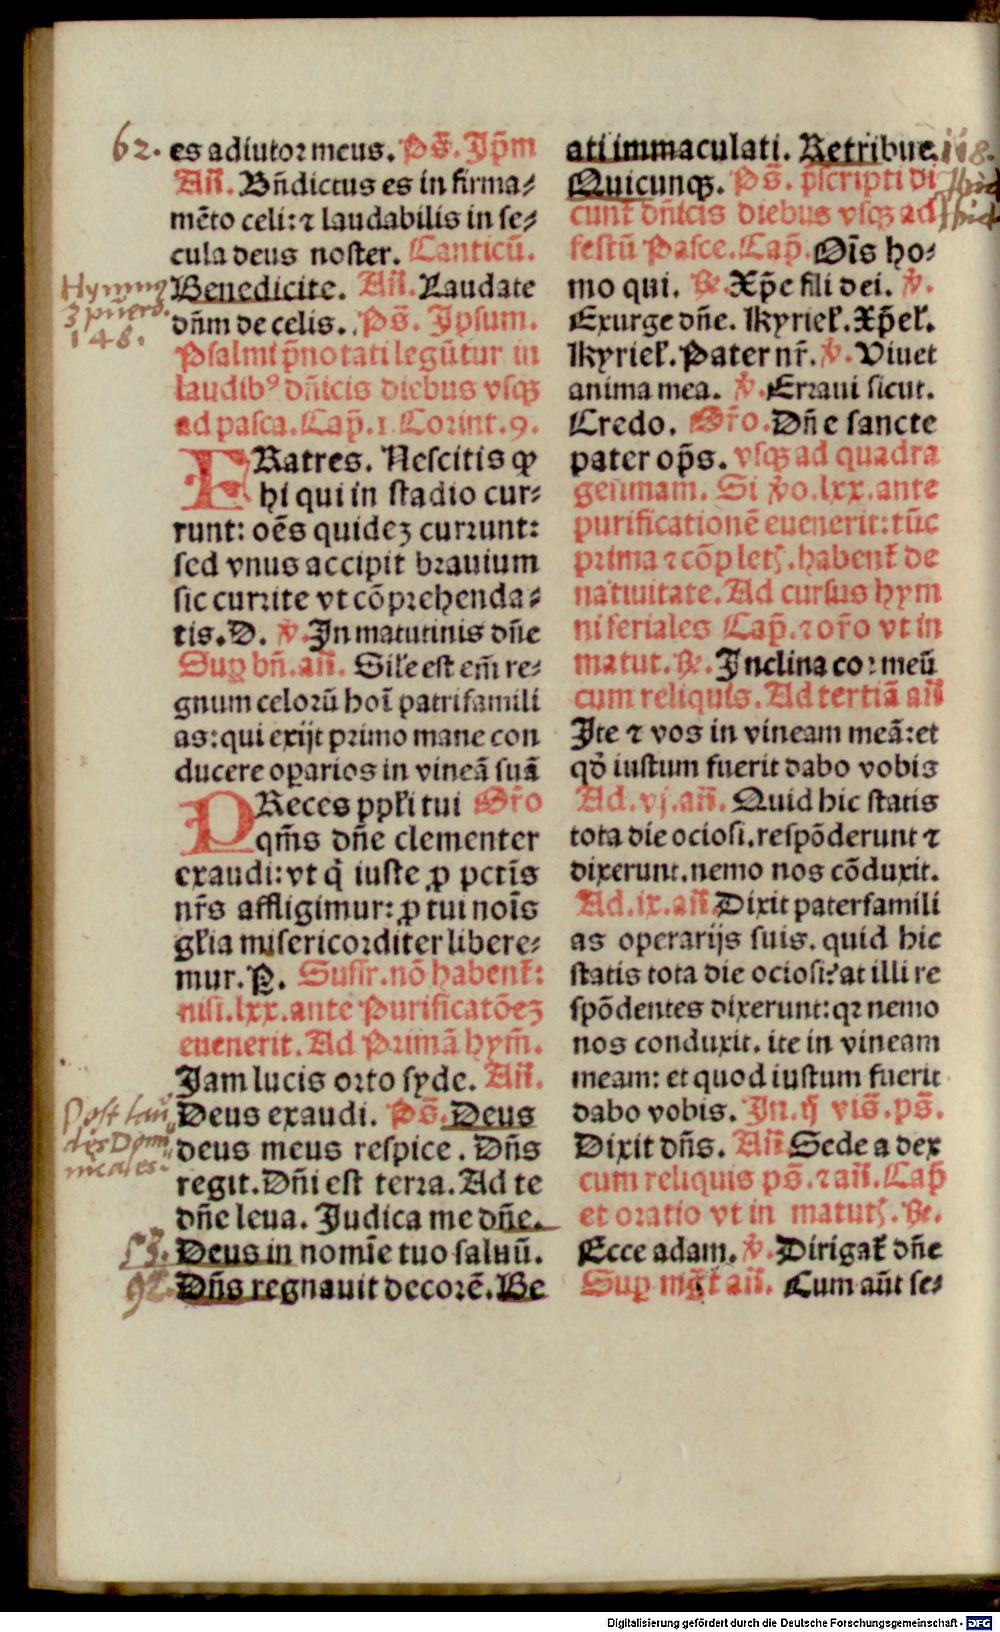 62. es adiutor meus. Ps̄. Ip̄m
Añ. Bñdictus es in firma⸗
mēto celi: ⁊ laudabilis in se⸗
cula deus noster. Canticū.
Hymnus Benedicite. Añ. Laudate
3 puero. dñm de celis. Ps̄. Ipsum.
148.
Psalmi p̄notati legūtur in
laudibꝰ dñicis diebus vsqꝫ
ad pasca. Cap̄. 1. Corint. 9.
FRatres. Nescitis ꝙ
hi qui in stadio cur⸗
runt: oēs quideꝫ currunt:
sed vnus accipit brauium
sic currite vt cōprehenda⸗
tis. D. ℣. In matutinis dñe
Suꝑ bñ. añ. Sil'e est em̄ re⸗
gnum celorū hoī patrifamili
as: qui exijt primo mane con
ducere oꝑarios in vineā suā
PReces ppl'i tui Or̄o
qm̄s dñe clementer
exaudi: vt q̄ iuste ꝓ pctīs
nr̄s affligimur: ꝓ tui noīs
gl'ia misericorditer libere⸗
mur. P. Suffr. nō habent̄:
nisi. lxx. ante Purificatōeꝫ
euenerit. Ad Primā hym̄.
Iam lucis orto syde. Añ.
Post lau Deus exaudi. Ps̄. Deus
des Domi deus meus respice. Dñs
nicales. regit. Dñi est terra. Ad te
dñe leua. Iudica me dñe.
53. Deus in nomīe tuo saluū.
92. Dñs regnauit decorē. Be
ati immaculati. Retribue. 118.
Quicunqꝫ. Ps̄. p̄scripti di Ibid
cunt̄ dñicis diebus vsqꝫ ad Ibid
festū Pasce. Cap̄. Oīs ho⸗
mo qui. ℟. Xp̄e fili dei. ℣.
Exurge dñe. Kyriel'. Xp̄el'.
Kyriel'. Pater nr̄. ℣. Viuet
anima mea. ℣. Erraui sicut.
Credo. Or̄o. Dñe sancte
pater op̄s. vsqꝫ ad quadra
gesimam. Si v̄o. lxx. ante
purificationē euenerit: tūc
prima ⁊ cōplet̄. habent̄ de
natiuitate. Ad cursus hym
ni feriales Cap̄. ⁊ or̄o vt in
matut. ℟. Inclina cor meū
cum reliquis. Ad tertiā añ
Ite ⁊ vos in vineam meā: et
qd̄ iustum fuerit dabo vobis
Ad. vj. añ. Quid hic statis
tota die ociosi. respōderunt ⁊
dixerunt. nemo nos cōduxit.
Ad. ix. añ. Dixit paterfamili
as operarijs suis. quid hic
statis tota die ociosi? at illi re
spōdentes dixerunt: qꝛ nemo
nos conduxit. ite in vineam
meam: et quod iustum fuerit
dabo vobis. In. ij vis̄. ps̄.
Dixit dñs. Añ Sede a dex
cum reliquis ps̄. ⁊ añ. Cap̄
et oratio vt in matut̄. ℟.
Ecce adam. ℣. Dirigat̄ dñe
Suꝑ mg̅t añ. Cum aūt se⸗
Digitalisierung gefördert durch die Deutsche Forschungsgemeinschaft - DFG